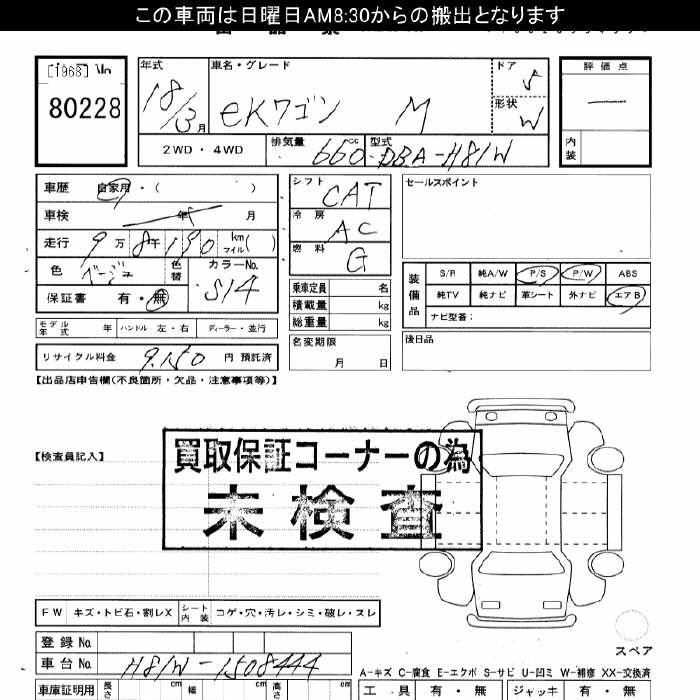 この車両は日曜日AM8:30からの搬出となります
[1968]
80228
年式 18/3月
車名・グレード eKワゴン M
ドア 5
形状 W
評価点
内装
2WD・4WD
排気量 660cc
型式 DBA-H81W
車歴 自家用・( )
車検 年 月
走行 9万8千190 km マイル( )
色 ベージュ
色替
カラーNo. S14
保証書 有・無
モデル年式 年 ハンドル 左・右 ディーラー・並行
リサイクル料金 9,150 円 預託済
シフト CAT
冷房 AC
燃料 G
乗車定員 名
積載量 kg
総重量 kg
名変期限
月 日
セールスポイント
装備品
S/R 純A/W P/S P/W ABS
純TV 純ナビ 革シート 外ナビ エアB
ナビ型番:
後日品
【出品店申告欄(不良箇所・欠品・注意事項等)】
【検査員記入】
買取保証コーナーの為
未検査
FW キズ・トビ石・割レX シート内装 コゲ・穴・汚レ・シミ・破レ・スレ
登録No
車台No H81W-1508444
スペア
A-キズ C-腐食 E-エクボ S-サビ U-凹ミ W-補修 XX-交換済
車庫証明用 長さ cm 幅 cm 高さ cm
工具 有・無 ジャッキ 有・無